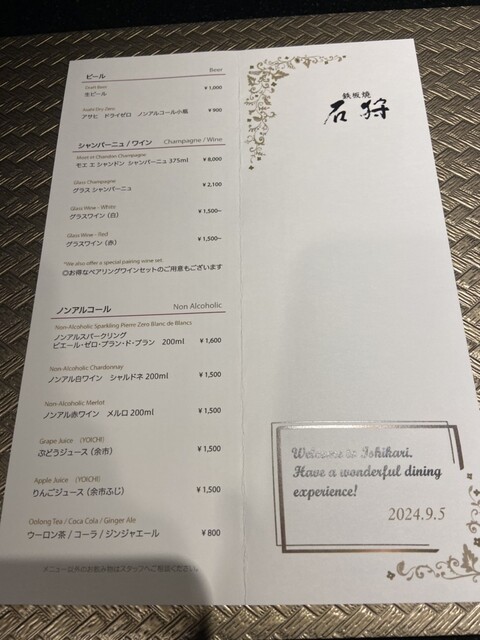 ビール Beer
Draft Beer
生ビール ¥1,000
Asahi Dry Zero
アサヒ ドライゼロ ノンアルコール小瓶 ¥900
シャンパーニュ / ワイン Champagne / Wine
Moet et Chandon Champagne
モエ エ シャンドン シャンパーニュ 375ml ¥8,000
Glass Champagne
グラス シャンパーニュ ¥2,100
Glass Wine - White
グラスワイン (白) ¥1,500~
Glass Wine - Red
グラスワイン (赤) ¥1,500~
*We also offer a special pairing wine set.
◎お得なペアリングワインセットのご用意もございます
ノンアルコール Non Alcoholic
Non-Alcoholic Sparkling Pierre Zero Blanc de Blancs
ノンアルスパークリング
ピエール・ゼロ・ブラン・ド・ブラン 200ml ¥1,600
Non-Alcoholic Chardonnay
ノンアル白ワイン シャルドネ 200ml ¥1,500
Non-Alcoholic Merlot
ノンアル赤ワイン メルロ 200ml ¥1,500
Grape Juice (YOICHI)
ぶどうジュース (余市) ¥1,500
Apple Juice (YOICHI)
りんごジュース (余市ふじ) ¥1,500
Oolong Tea / Coca Cola / Ginger Ale
ウーロン茶 / コーラ / ジンジャエール ¥800
メニュー以外のお飲み物はスタッフへご相談ください
鉄板焼
石狩
Welcome to Ishikari.
Have a wonderful dining
experience!
2024.9.5